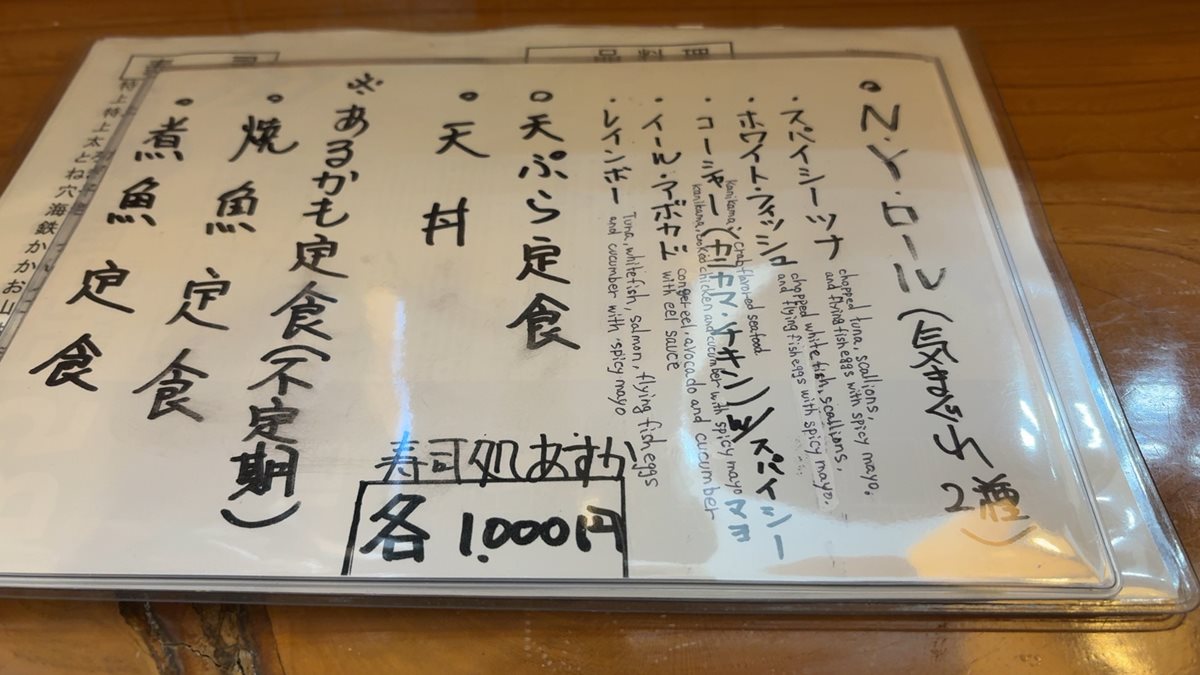 。N・Y・ロール(気まぐれ2種)
・スパイシーツナ
chopped tuna, scallions,
and flying fish eggs with spicy mayo.
・ホワイト・フィッシュ/スパイシー
chopped white fish, scallions,
and flying fish eggs with spicy mayo.
・コーシャー(カニカマ・チキン)
マヨ
Kanikama, crab flavored seafood
kanikama, cooked chicken and cucumber with spicy mayo
・イール・アボカド
conger eel, avocado and cucumber
with eel sauce
・レインボー
Tuna, white fish, salmon, flying fish eggs
and cucumber with spicy mayo
。天ぷら定食
。天丼
※あるかも定食(不定期)
。焼魚定食
。煮魚定食
寿司処あすか
各1.000円
一品料理
特上特上太
とね穴海鉄かかお山